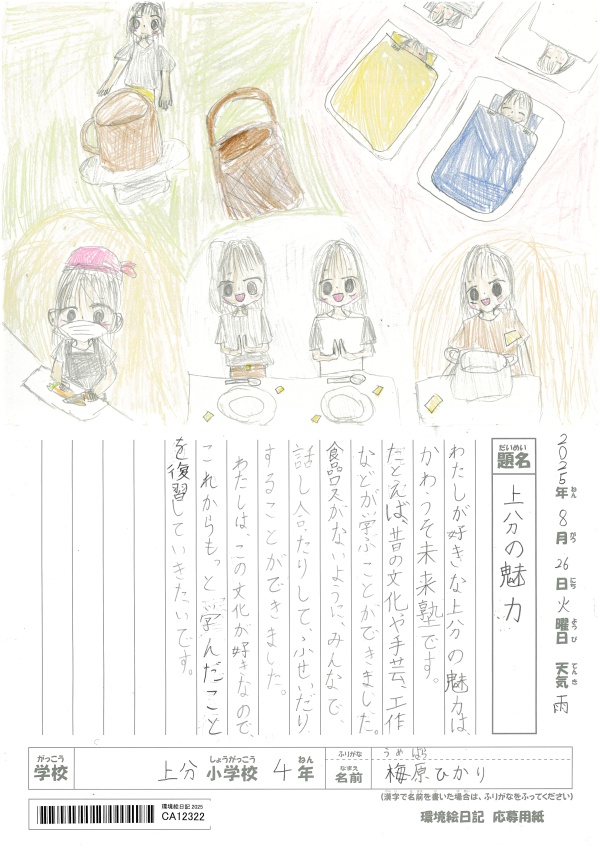 2025年 8月 26日 火曜日 天気 雨
ねん がつ にち ようび てんき
だいめい
題名 上分の魅力
わたしが好きな上分の魅力は、
かわうそ未来塾です。
たとえば、昔の文化や手芸、工作
などが学ぶことができました。
食品ロスがないように、みんなで、
話し合ったりして、ふせいだり
することができました。
わたしは、この文化が好きなので、
これからもっと学んだこと
を復習していきたいです。
がっこう しょうがっこう ねん
学校 上分 小学校 4年
ふりがな うめ ばら
なまえ
名前 梅原ひかり
(漢字で名前を書いた場合は、ふりがなをふってください)
環境絵日記 2025
CA12322
環境絵日記 応募用紙